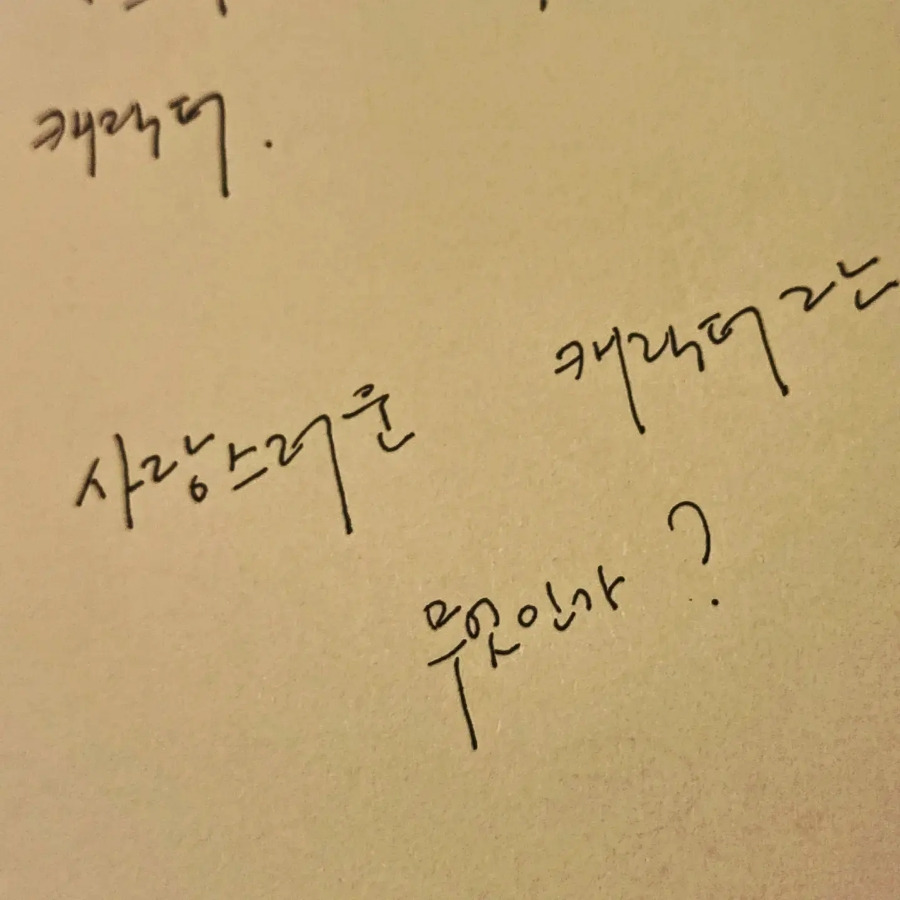 캐릭터.
사랑스러운 캐릭터란
무엇인가?